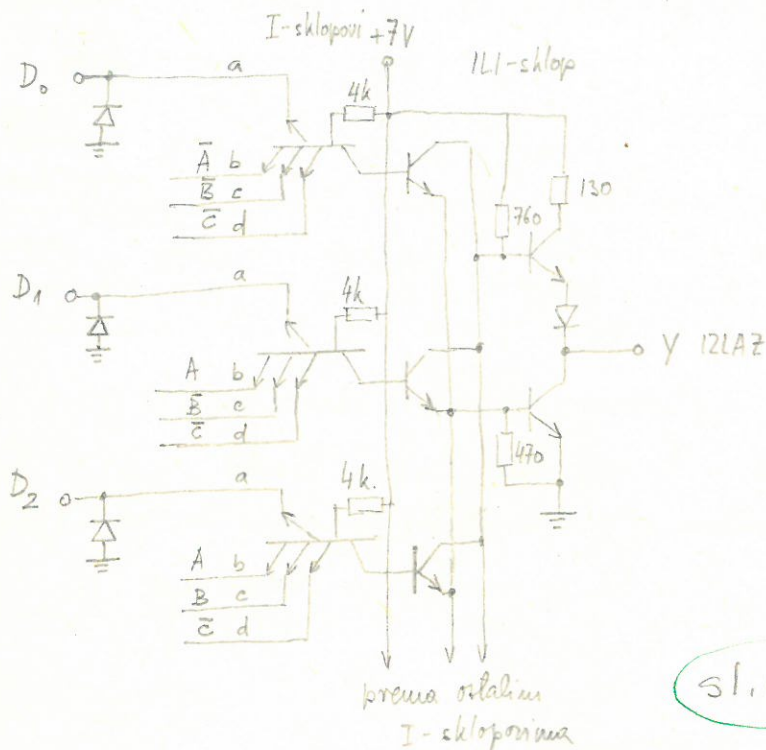 I-sklopovi +7V
ILI-sklop
D₀ a 4k
A̅ b
B̅ c
C̅ d
760
130
D₁ a 4k
A b
B̅ c
C̅ d
Y IZLAZ
470
D₂ a 4k.
A b
B c
C̅ d
prema ostalim
I-sklopovima
sl.